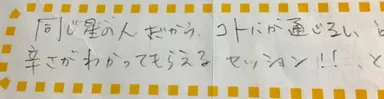 同じ星の人だから、コトバが通じるし、と
辛さがわかってもらえる セッション!!、と